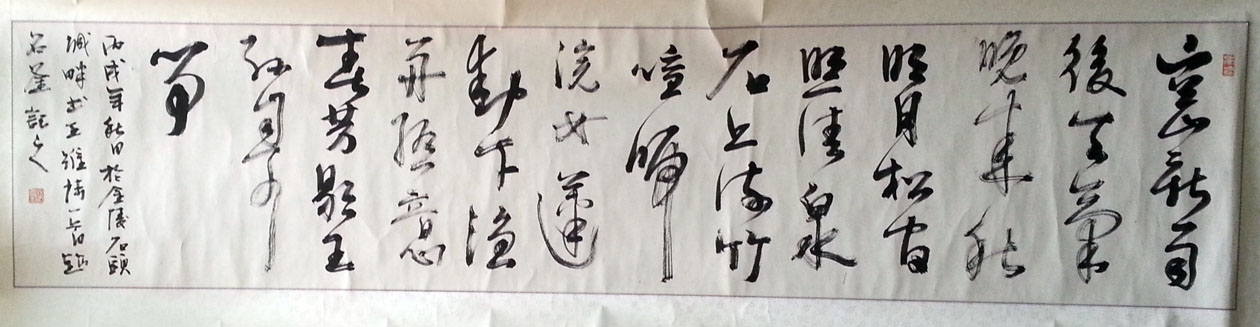 空山新雨
後天氣
晚来秋
明月松间
照清泉
石上流竹
喧歸
浣女蓮
動下漁
舟随意
春芳歇王
孫自可
留
丙戌年秋日於金陵石頭
城畔书王維詩一首